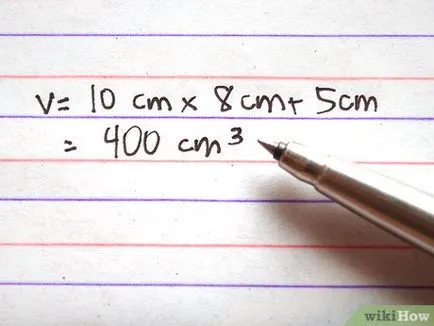 V= 10 cm x 8cm+ 5cm
= 400 cm³
wikiHow